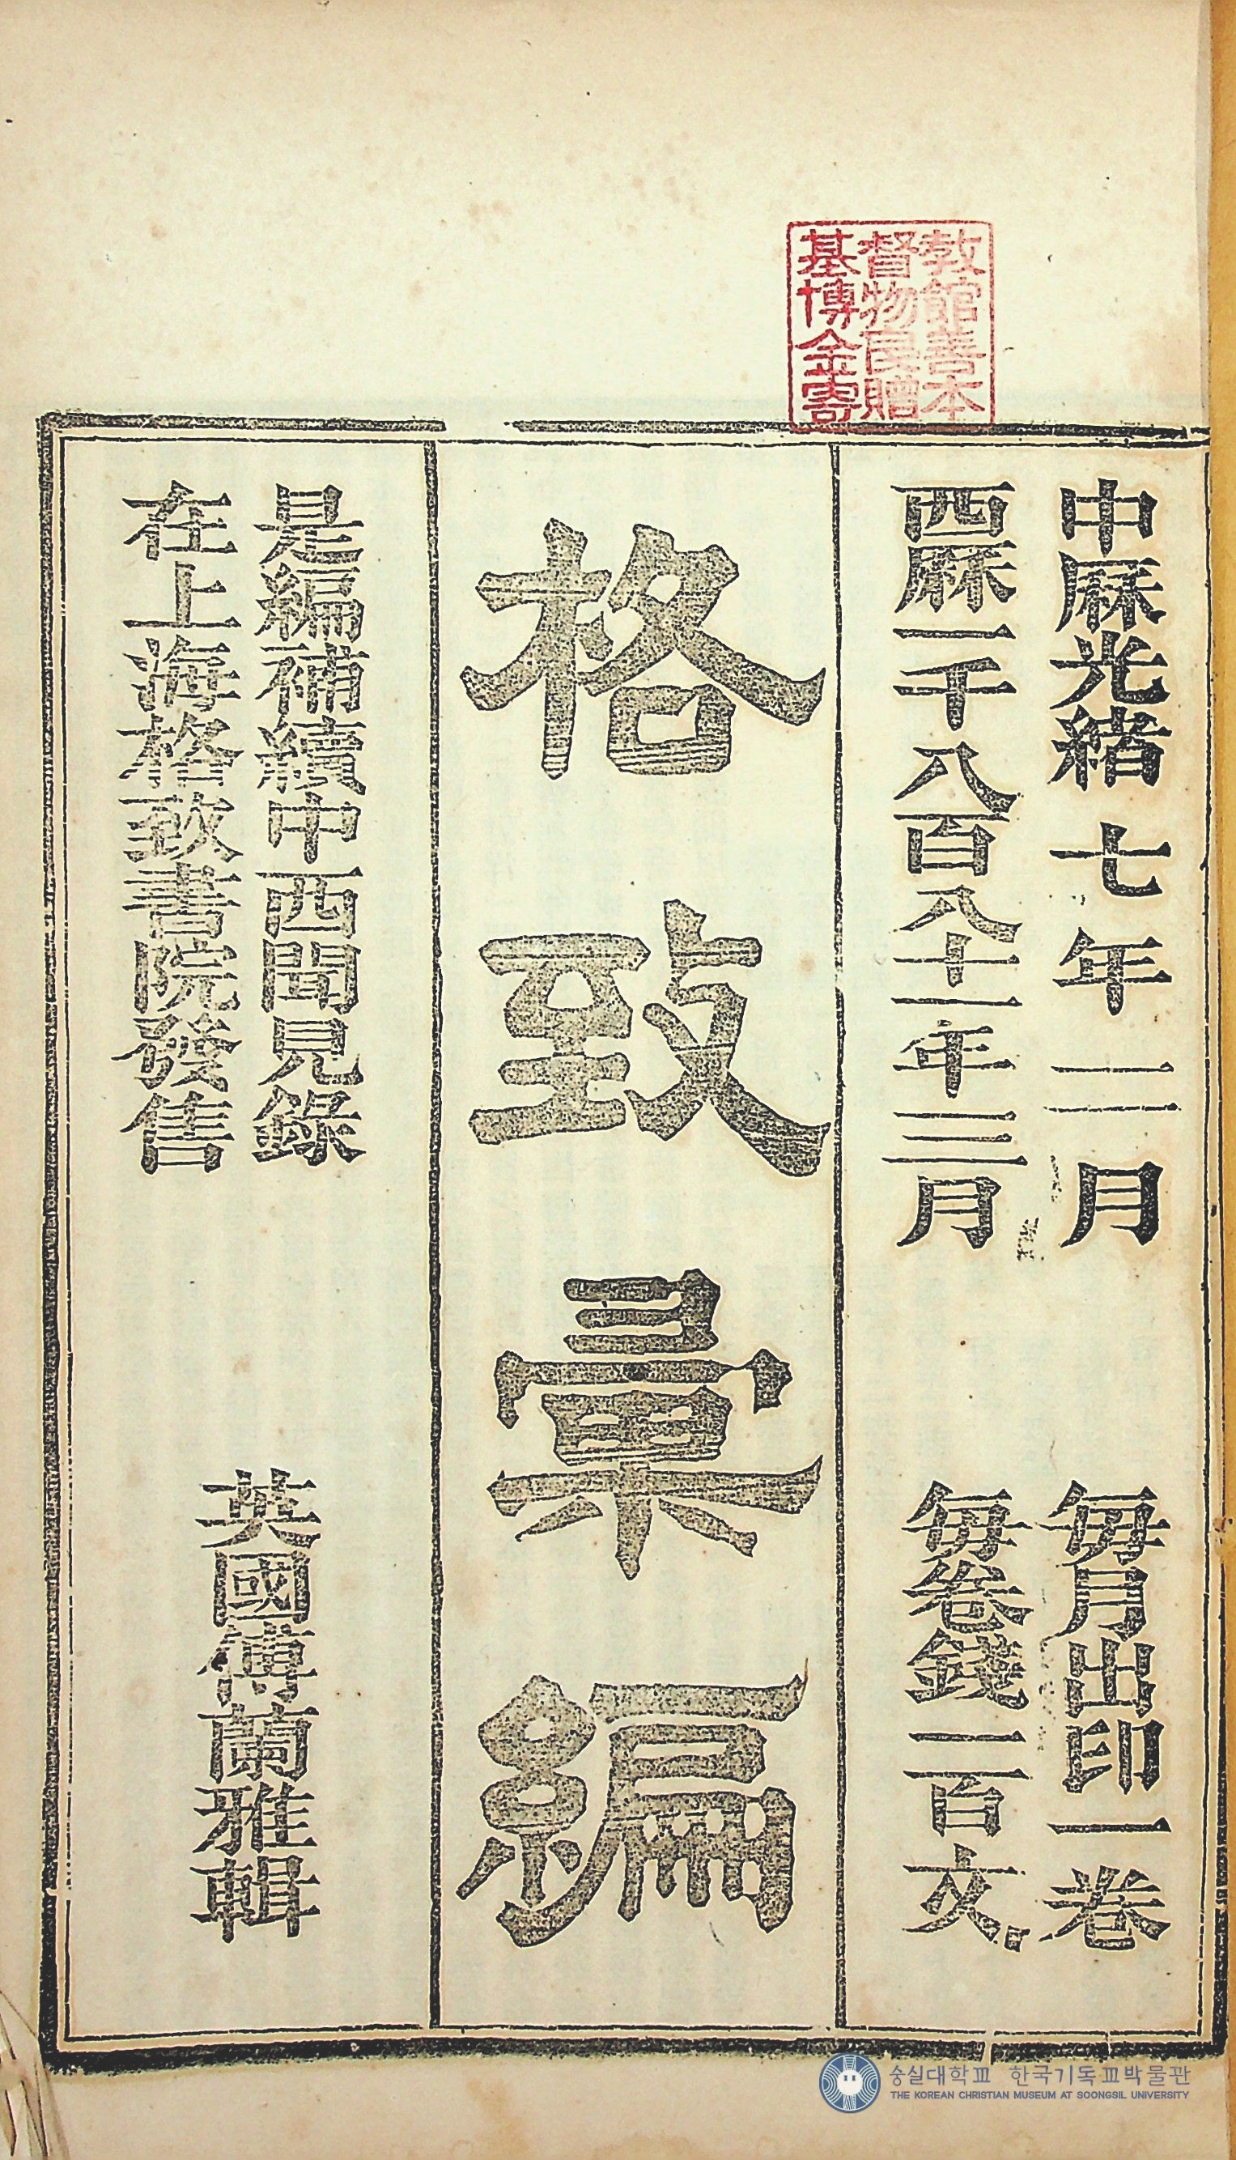 基督敎
博物館
金良善
寄贈本
中厤光緒七年二月 每月出印一卷
西厤一千八百八十一年三月 每卷錢一百文
格致彙編
是編補續中西聞見錄
在上海格致書院發售
英國傅蘭雅輯
숭실대학교 한국기독교박물관
THE KOREAN CHRISTIAN MUSEUM AT SOONGSIL UNIVERSITY